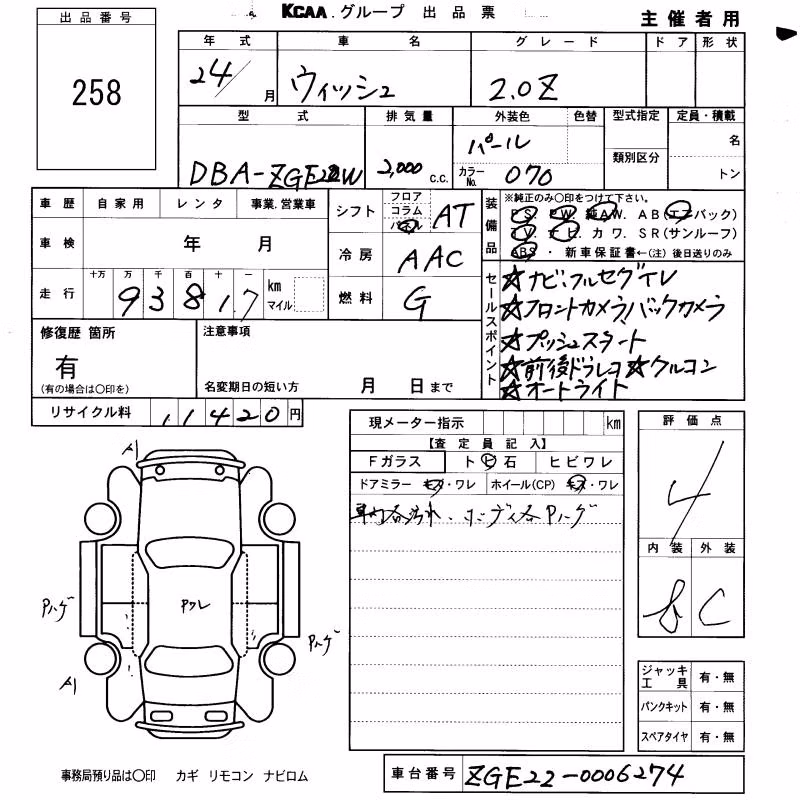 KCAA.グループ 出品票
主催者用
出品番号
258
年式 車名 グレード ドア 形状
24/月 ウィッシュ 2.0Z
型式 排気量 外装色 色替 型式指定 定員・積載
DBA-ZGE22W 2,000 c.c. パール
カラーNo. 070
類別区分
名
トン
車歴 自家用 レンタ 事業.営業車
車検 年 月
走行 十万 万 千 百 十 一
93817 km マイル
シフト フロア コラム パネル AT
冷房 AAC
燃料 G
装備品
※純正のみ〇印をつけて下さい。
P S. P W. 純A W. A B (エアバック)
T V. ナビ. カワ. S R (サンルーフ)
ABS・新車保証書←(注) 後日送りのみ
セールスポイント
☆ナビ、フルセグTV
☆フロントカメラ、バックカメラ
☆プッシュスタート
☆前後ドラレコ☆クルコン
☆オートライト
修復歴 箇所
有
(有の場合は〇印を)
注意事項
名変期日の短い方 月 日まで
リサイクル料 11420円
現メーター指示 km
【査定員記入】
Fガラス ト ヒ 石 ヒビワレ
ドアミラー キズ・ワレ ホイール(CP) キズ・ワレ
車内各汚れ、ボディ各Pハゲ
評価点
4
内装 外装
C
A1
Pハゲ
Pワレ
Pハゲ
A1
ジャッキ工具 有・無
パンクキット 有・無
スペアタイヤ 有・無
事務局預り品は〇印 カギ リモコン ナビロム
車台番号 ZGE22-0006274